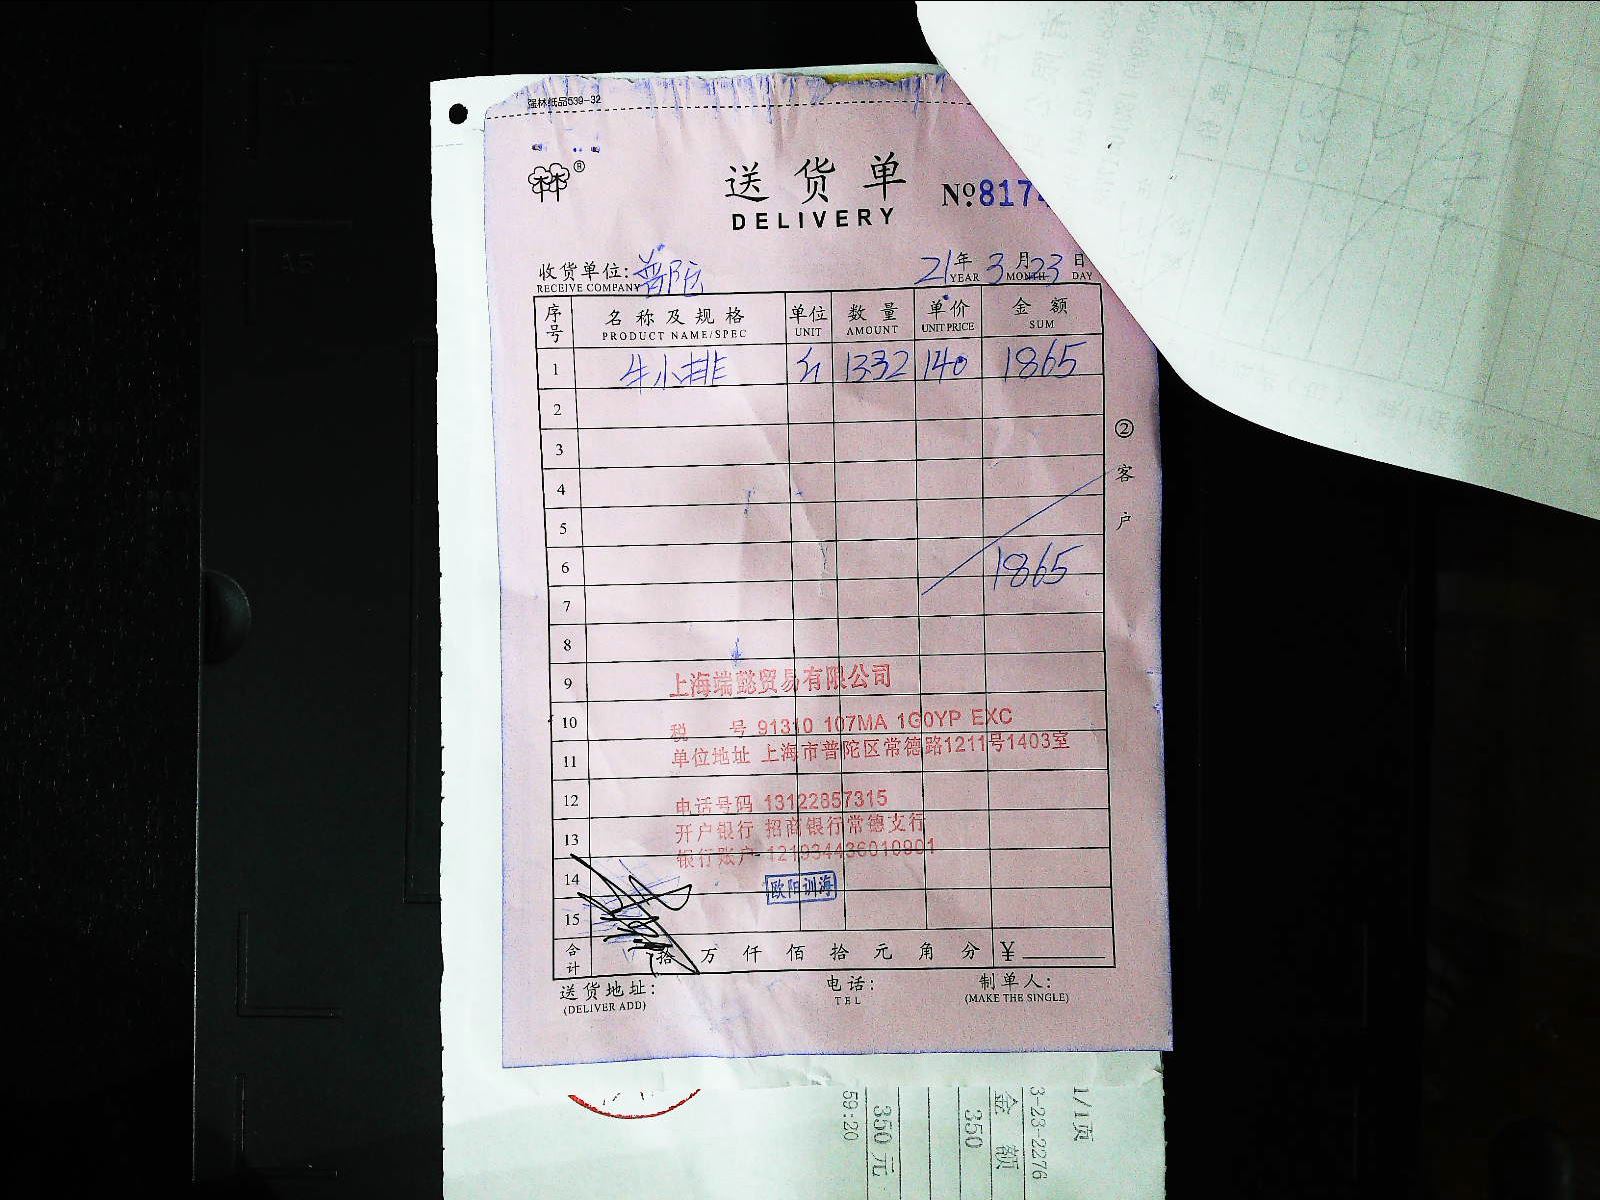 强林纸品539-32
林 ®
送货单
DELIVERY
№8174
收货单位: 普陀 21年 3月 23日
RECEIVE COMPANY YEAR MONTH DAY
序号 名称及规格 单位 数量 单价 金额
PRODUCT NAME/SPEC UNIT AMOUNT UNIT PRICE SUM
1 牛小排 斤 1332 140 1865
2
3
4
5
6 1865
7
8
9
10
11
12
13
14
15
②客户
上海端懿贸易有限公司
税 号 91310 107MA 1G0YP EXC
单位地址 上海市普陀区常德路1211号1403室
电话号码 13122857315
开户银行 招商银行常德支行
银行账户 121934436010901
欧阳训海
合计 拾 万 仟 佰 拾 元 角 分 ¥
送货地址: 电话: 制单人:
(DELIVER ADD) TEL (MAKE THE SINGLE)
1/1页
3-23-2276
金 额
350
350元
59:20